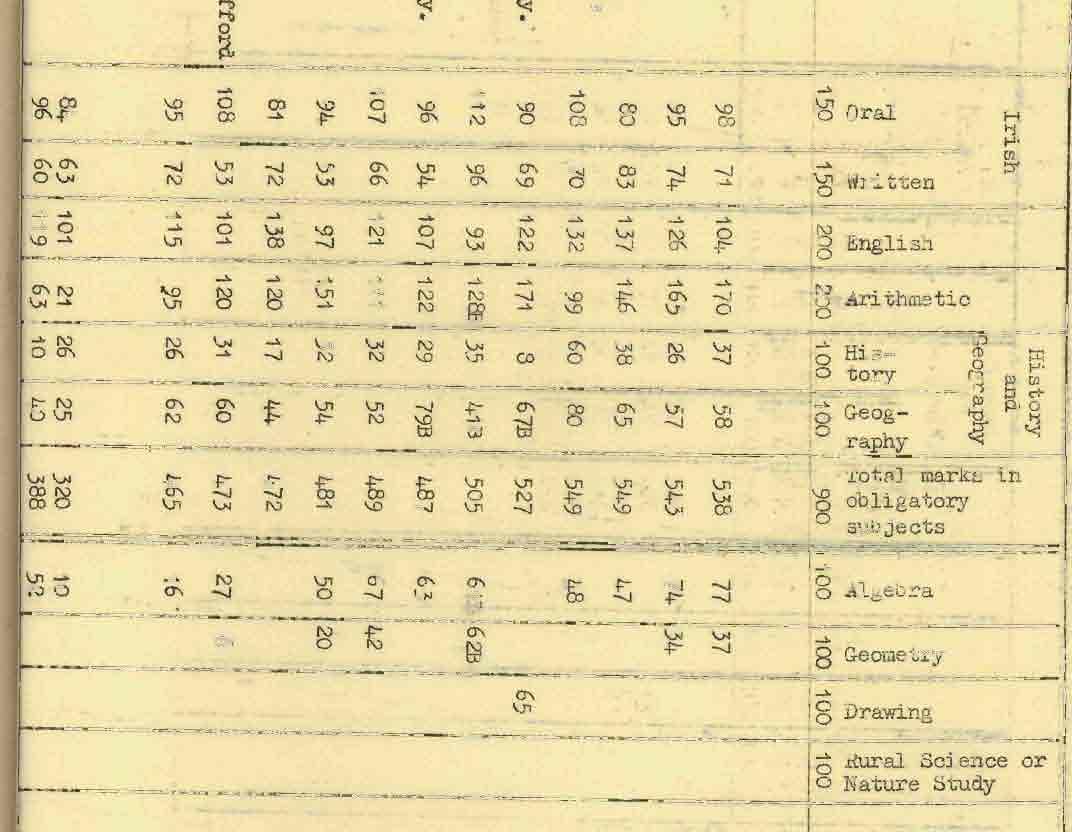 Irish
History
and
Geography
Oral
Written
English
Arithmetic
His-
tory
Geog-
raphy
Total marks in
obligatory
subjects
Algebra
Geometry
Drawing
Rural Science or
Nature Study
150 150 200 200 100 100 900 100 100 100 100
98 71 104 170 37 58 538 77 37
95 74 126 165 26 57 543 74 34
80 83 137 146 38 65 549 47
108 70 132 99 60 80 549 48
y. 90 69 122 171 8 67B 527 65
112 96 93 128E 35 41B 505 62B
y. 96 54 107 122 29 79B 487 63
107 66 121 32 52 489 67 42
94 53 97 151 32 54 481 50 20
81 72 138 120 17 44 472
fford 108 53 101 120 31 60 473 27 6
95 72 115 95 26 62 465 16
84 63 101 21 26 25 320 10
96 60 119 63 10 40 388 52